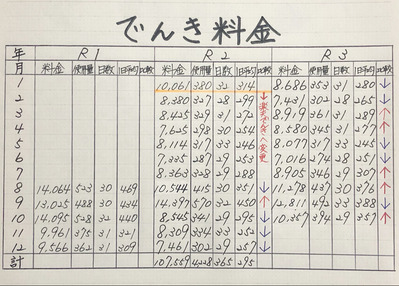 でんき料金
年 R1 R2 R3
月 料金 使用量 日数 1日平均 比較 料金 使用量 日数 1日平均 比較 料金 使用量 日数 1日平均 比較
1 10,061 380 32 314 8,686 353 31 280 ↓
2 8,380 327 28 299 ↓ 7,431 302 28 265 ↓
3 8,425 329 31 272 8,919 361 31 289 ↑
4 7,625 298 30 254 8,580 345 31 277 ↑
5 8,114 317 33 246 8,077 317 33 245 ↓
6 7,355 287 29 7,016 274 28 251 ↓
7 8,363 328 29 288 8,905 365 29 307 ↑
8 14,064 523 30 469 10,544 415 30 351 ↓ 11,278 437 30 376 ↑
9 13,025 488 30 434 14,397 570 32 450 ↑ 12,811 492 33 388 ↓
10 14,095 528 32 440 8,545 341 29 295 ↓ 10,357 394 29 357 ↑
11 9,961 375 31 321 8,309 334 33 252 ↓
12 9,566 362 31 309 7,461 302 29 257 ↓
計 107,559 4,228 365 295